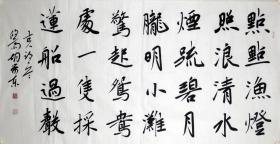 點點漁燈
照浪清水
煙疏碧月
朧明小灘
驚起鴛鴦
處一隻採
蓮船過聲